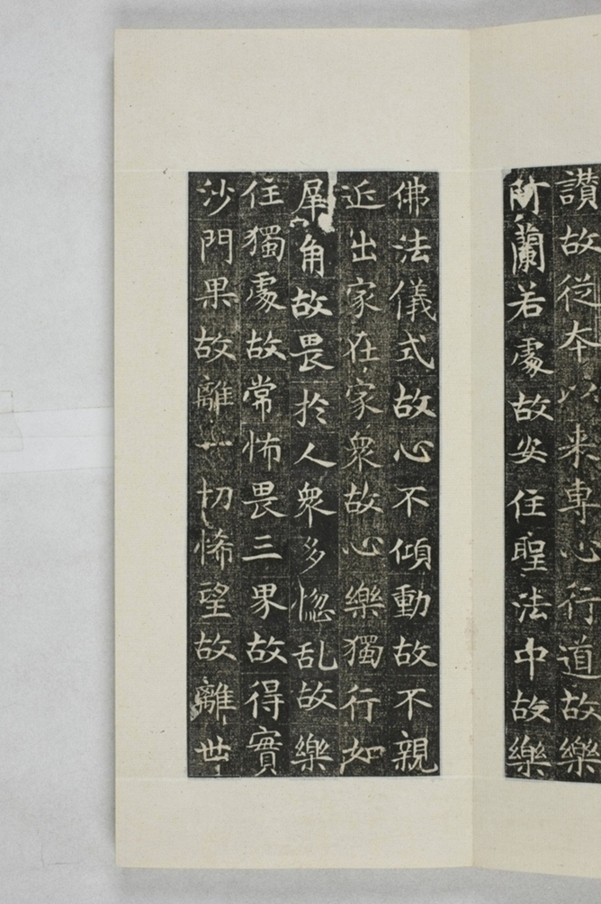 讃故従本以来専心行道故樂
阿蘭若處故安住聖法中故樂
佛法儀式故心不傾動故不親
近出家在家衆故心樂獨行如
犀角故畏於人衆多惚乱故樂
住獨處故常怖畏三界故得實
沙門果故離一切悕望故離世